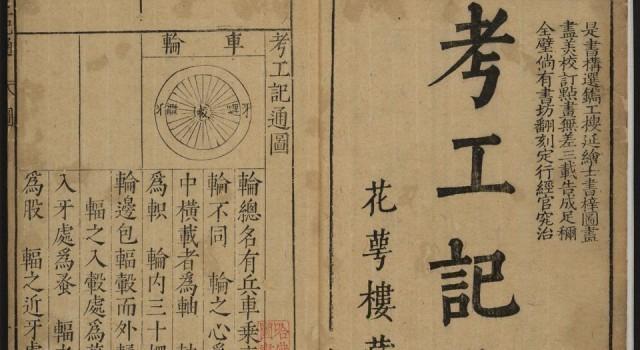 是書搆選鐫工搜延繪士書梓圖畫
盡美校訂點畫無差三載告成足稱
全璧倘有書坊翻刻定行經官究治
考工記
花萼樓
考工記通圖
車輪
牙
輪總名有兵車乘
輪不同 輪之心
中橫載者為軸
為軹 輪內三十
輪邊包輻轂而外
輻之入轂處為
入牙處為蚤 輻
為股 輻之近牙